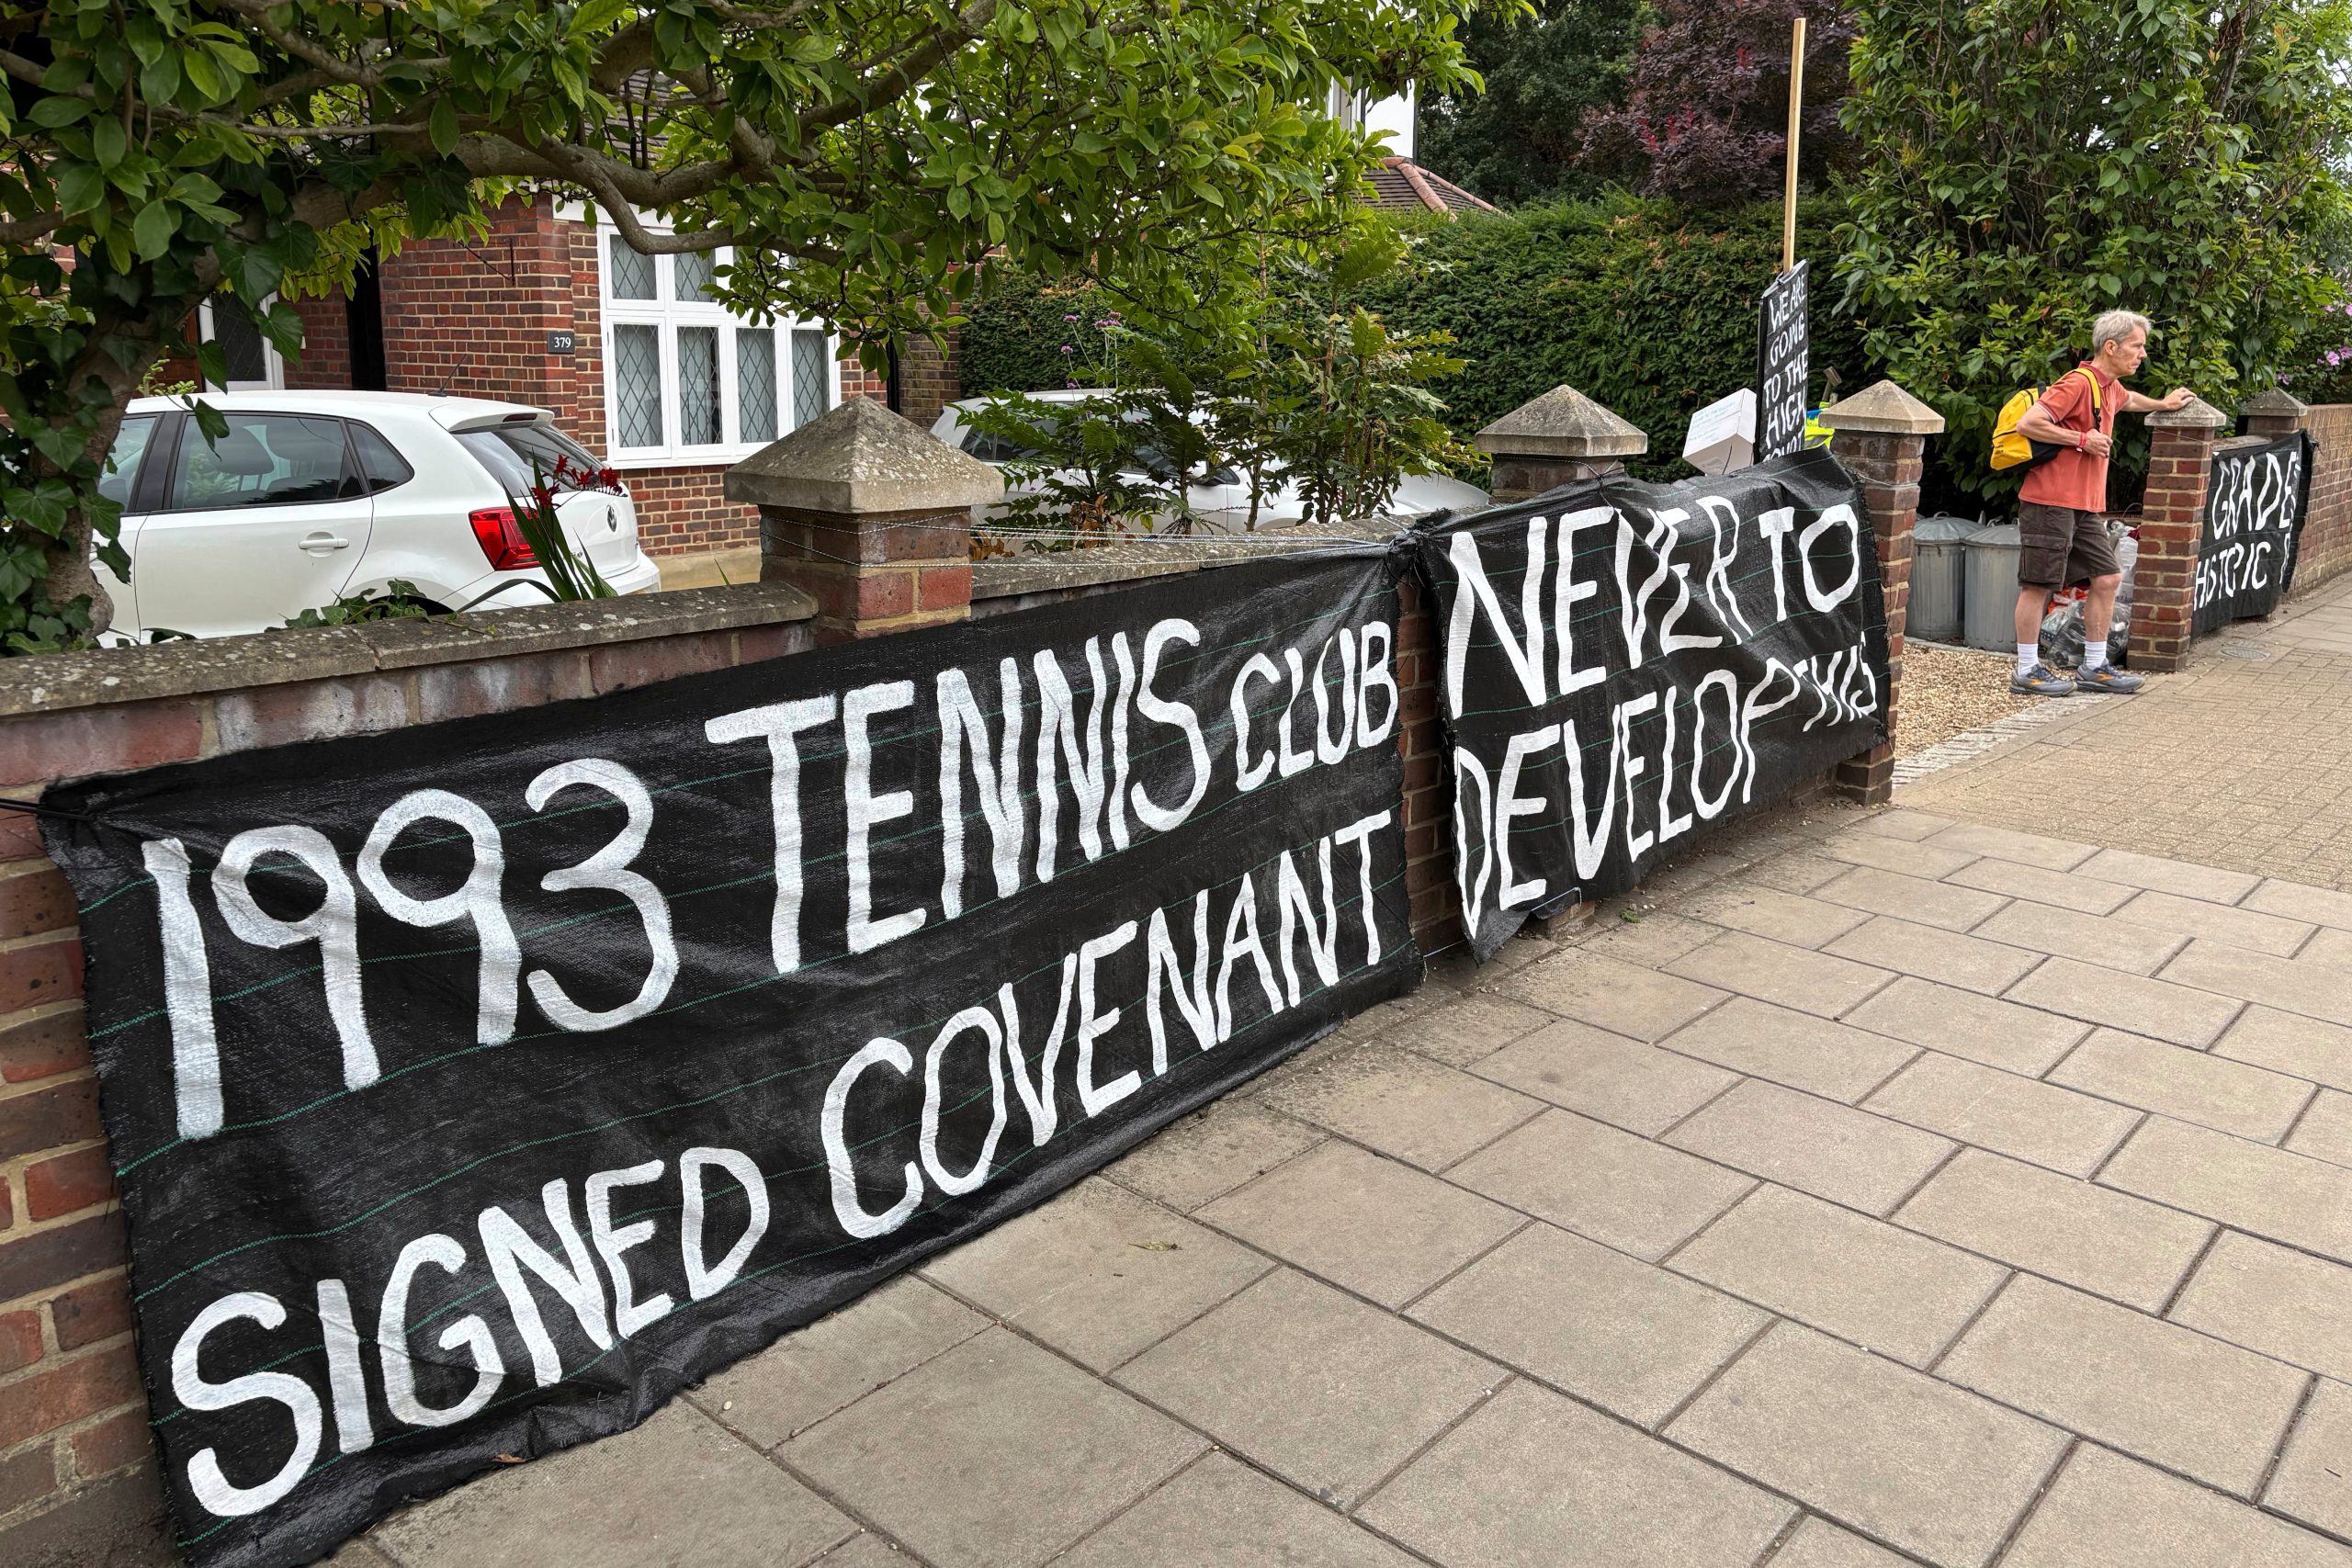 1993 TENNIS CLUB
SIGNED COVENANT
NEVER TO
DEVELOP THIS
WE ARE
GOING
TO THE
HIGH
COURT
GRADE
HISTORIC
379